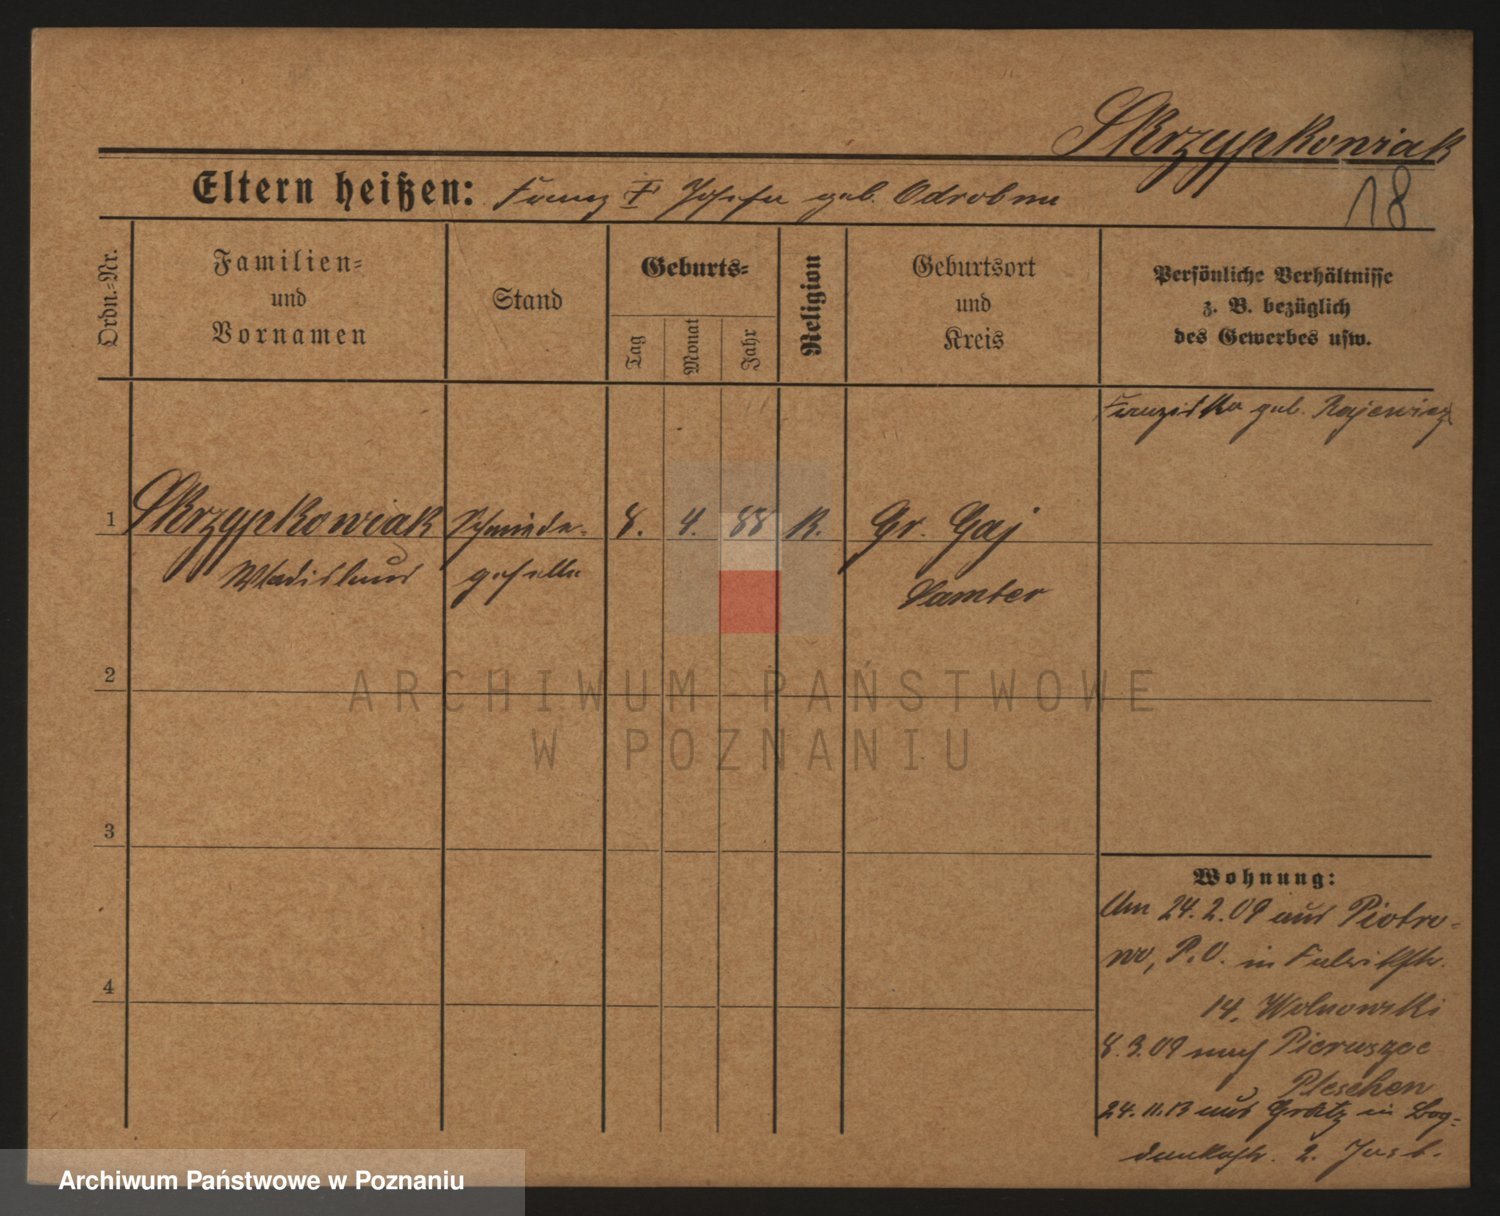 Skrzypkowiak
Eltern heißen: Franz † Josefa geb. Odrobna
18
Ordn.-Nr.
Familien-
und
Vornamen
Stand
Geburts-
Tag
Monat
Jahr
Religion
Geburtsort
und
Kreis
Persönliche Verhältnisse
z. B. bezüglich
des Gewerbes usw.
Franziska geb. Rajewicz
1 Skrzypkowiak Schmiede- 8. 4. 88 K. Gr. Gaj
Wladislaus geselle Samter
2
ARCHIWUM PAŃSTWOWE
W POZNANIU
3
Wohnung:
Am 24.2.09 aus Piotro-
wo, P.O. in
4
14, Wolnowski
8.3.09 nach Pieruszyce
Pleschen
24.11.13 aus Grätz in Bog-
dankastr. 2.
Archiwum Państwowe w Poznaniu